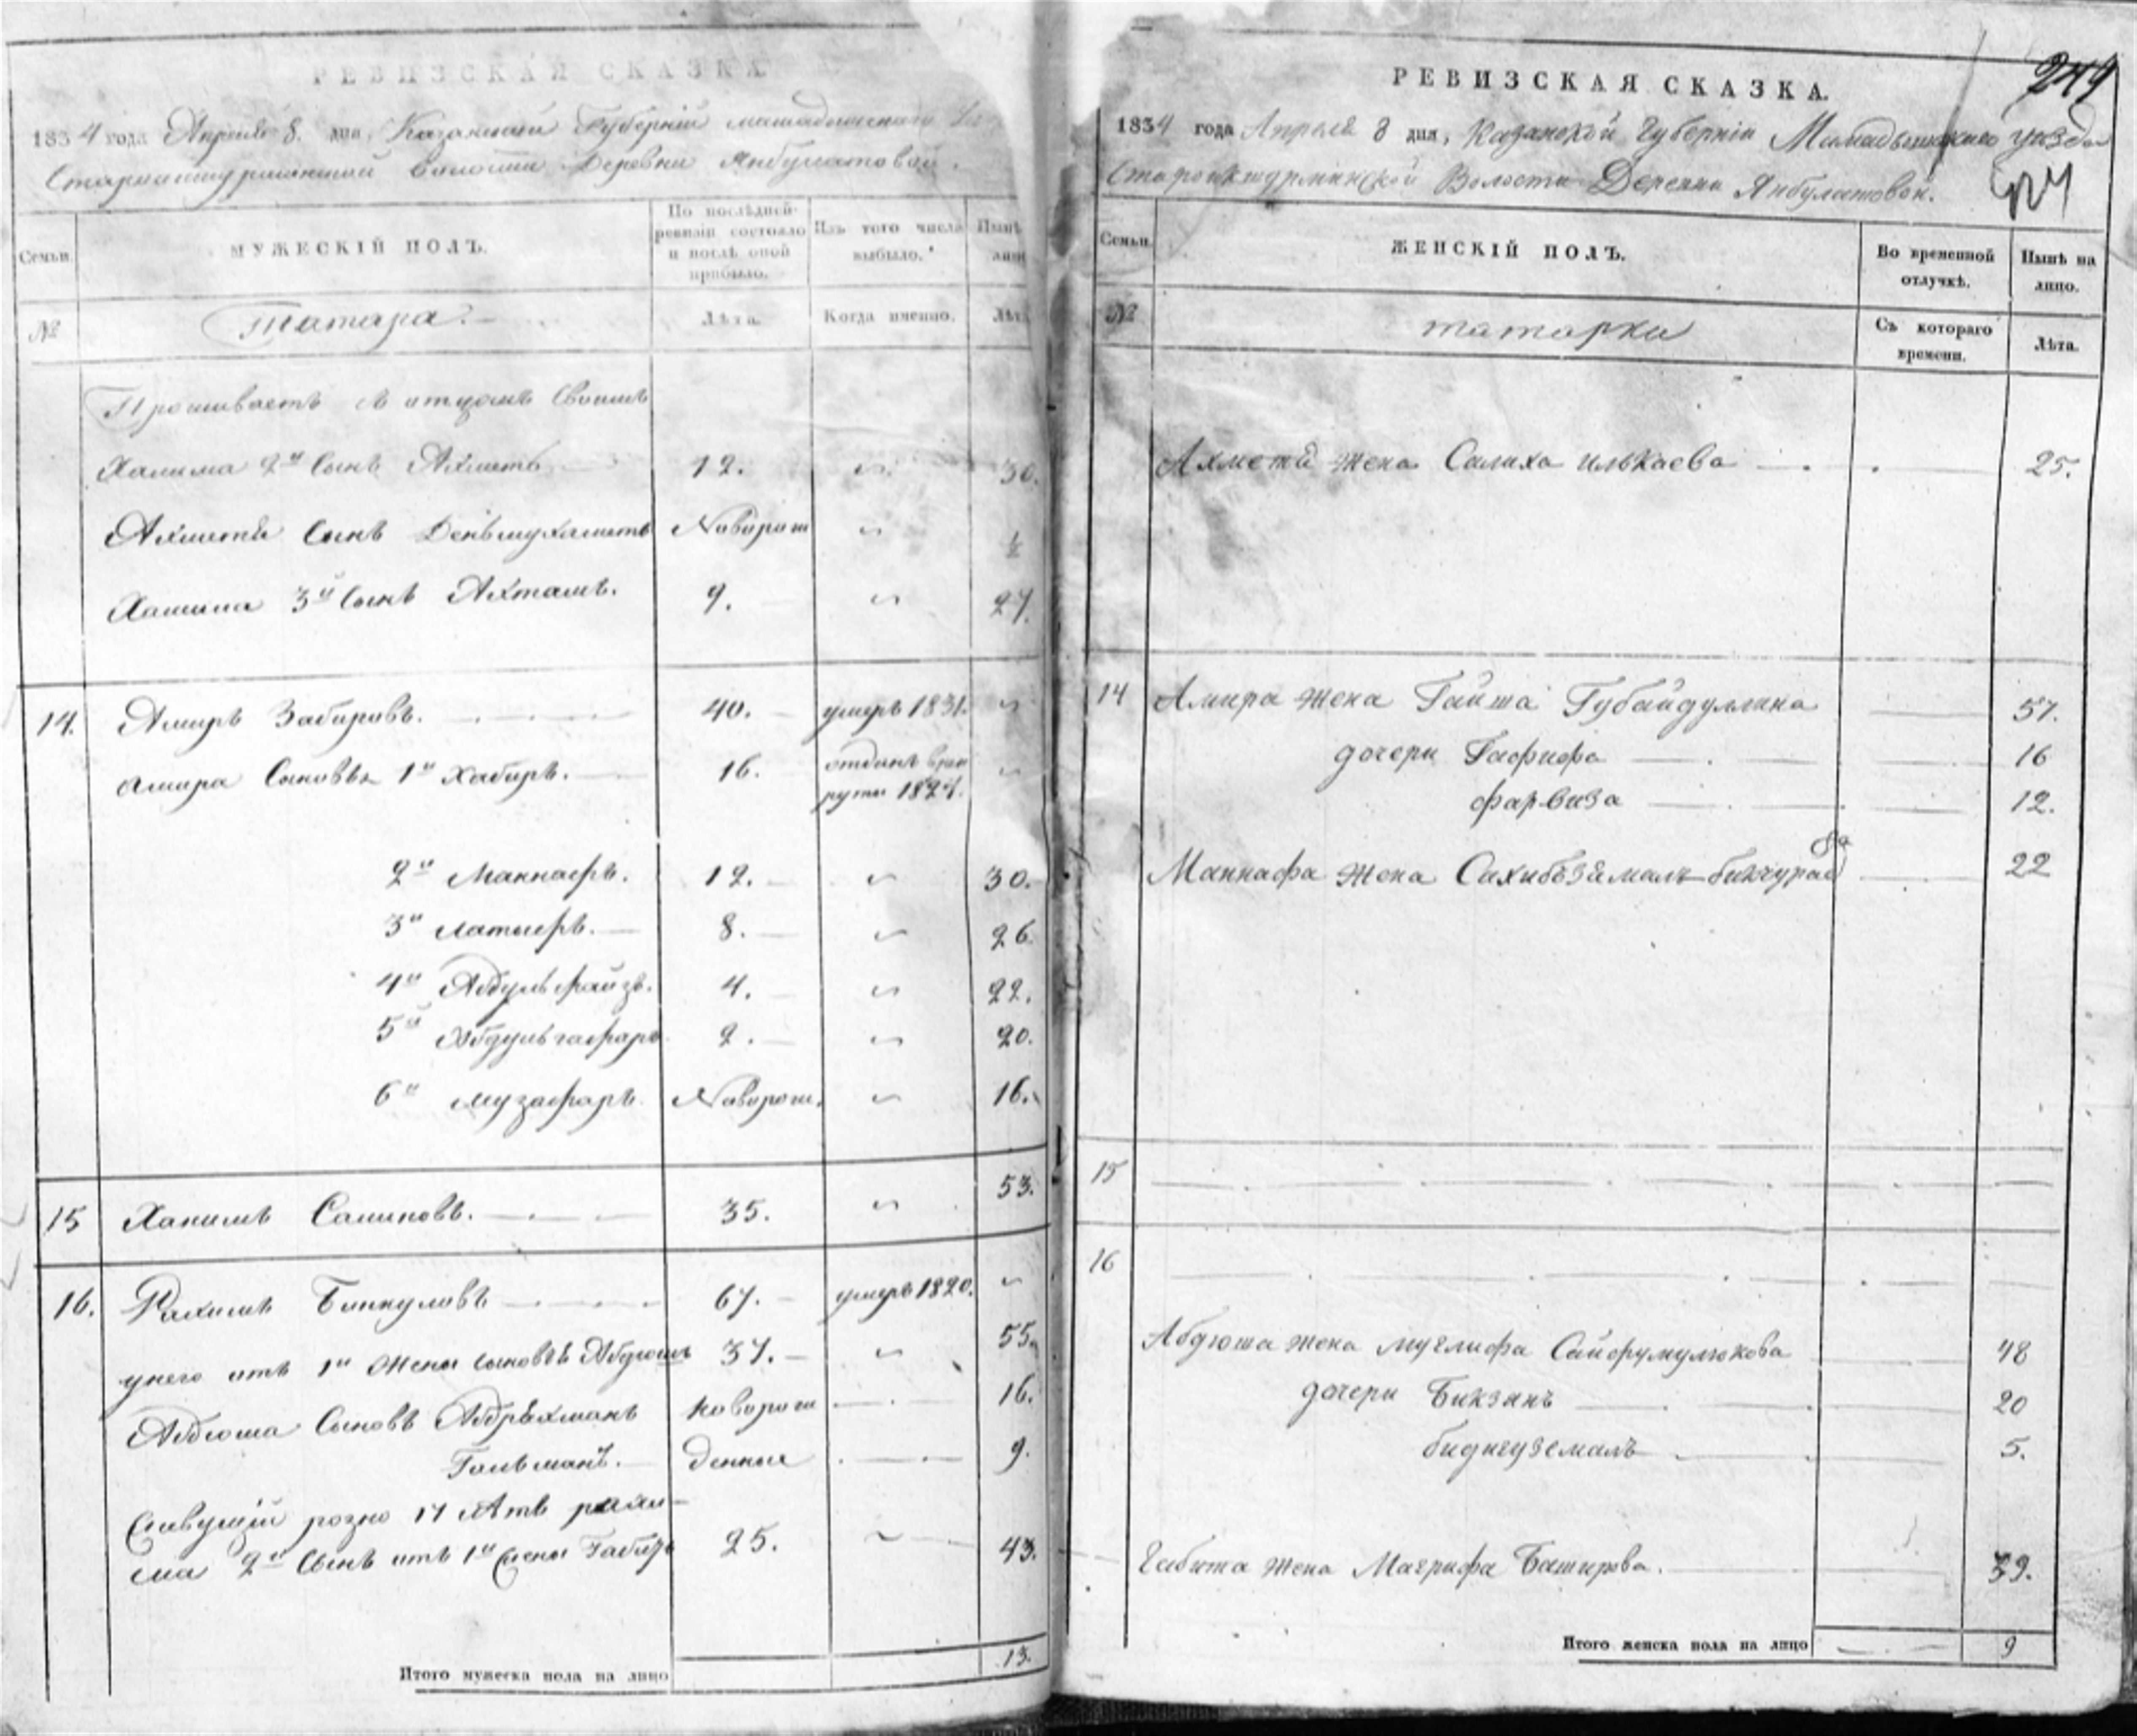 РЕВИЗСКАЯ СКАЗКА
1834 года Апреля 8. дня, Казанской Губернии Мамадышскаго
Волости Деревни Янбулатовой.
Семьи.
МУЖЕСКІЙ ПОЛЪ.
По послѣдней ревизіи состояло и послѣ оной прибыло.
Изъ того числа выбыло.
Нынѣ
№
Татара.
Лѣта.
Когда именно.
Лѣта
отцомъ своимъ
2й сынъ Ахметъ 12. 30.
Ахметя сынъ Деньмухаметъ Наворож ½
3й сынъ Ахтамъ. 9. 27.
14. Амиръ Забировъ. 40. умеръ 1831.
Амира Сыновья 1й Хабиръ. 16. отданъ врек
руты 1827.
2й Маннафъ. 12. 30.
3й Латыфъ. 8. 26.
4й Абдулъфайзъ. 4. 22.
5й Абдулъгафаръ 2. 20.
6й Музафаръ Наворож. 16.
15 35. 53.
16. Рахимъ 67. умеръ 1820.
унего отъ 1й жены сыновья Абдюшъ 37. 55.
Абдюша Сыновъ Абдрахманъ новорож 16.
денные 9.
розно
2й сынъ отъ 1й жены 25. 43.
Итого мужеска пола на лицо 13.
РЕВИЗСКАЯ СКАЗКА.
249
1834 года Апреля 8 дня, Казанской Губерніи Мамадышскаго уезда
Волости Деревни Янбулатовой.
Семьи.
ЖЕНСКІЙ ПОЛЪ.
Во временной отлучкѣ.
Нынѣ на лицо.
№
татарки
Съ котораго времени.
Лѣта.
Ахметя жена Салиха Илькаева 25.
14 Амира жена Гайша Губайдуллина 57.
дочери Гафифа 16
фарвиза 12.
Маннафа жена Сахибъзямалъ бикчурае
ва 22
15
16
Абдюша жена Муглифа 48
дочери Бикзянъ 20
5.
Габита жена Магрифа Баширова. 39.
Итого женска пола на лицо 9